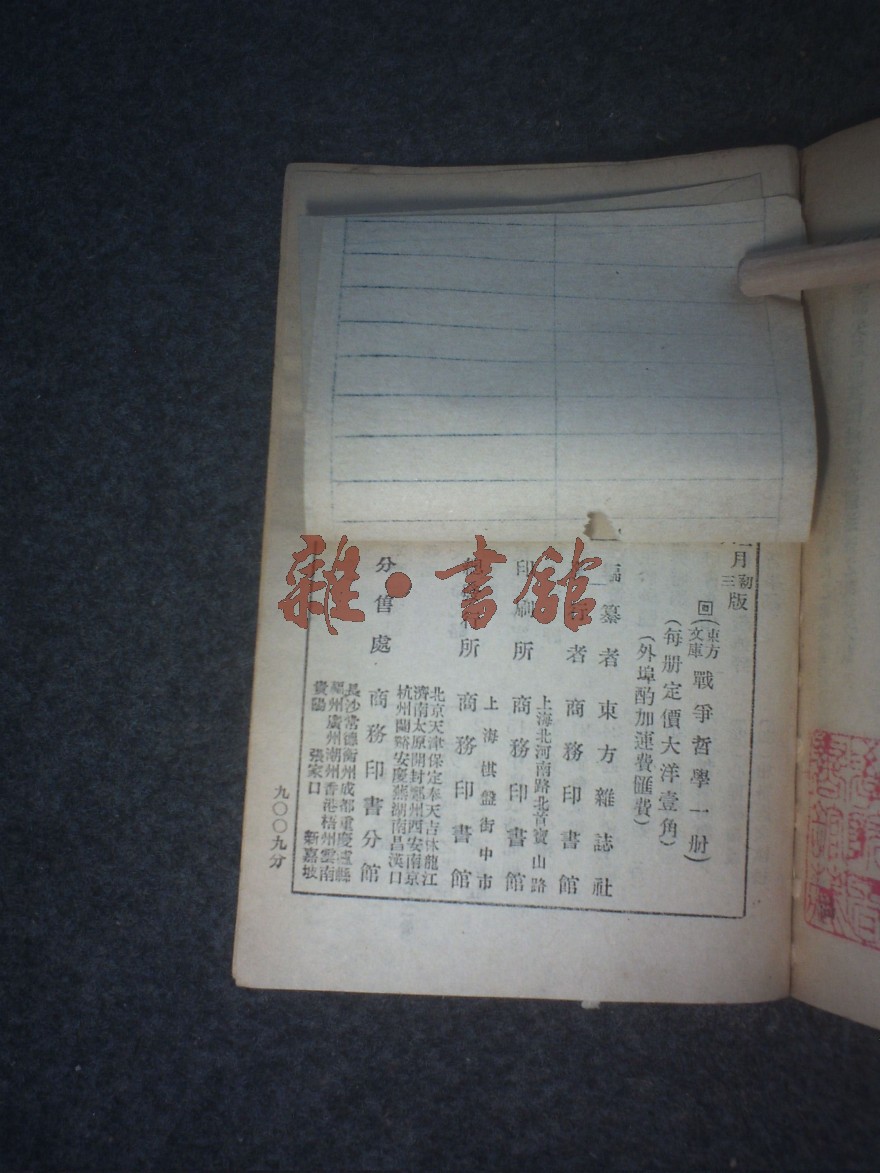 月初版
三版
回(東方文庫)戰爭哲學一册)
(每册定價大洋壹角)
(外埠酌加運費匯費)
纂者 東方雜誌社
者 商務印書館
上海北河南路北首寶山路
印刷所 商務印書館
上海棋盤街中市
所 商務印書館
北京天津保定奉天吉林龍江
濟南太原開封鄭州西安南京
杭州蘭谿安慶蕪湖南昌漢口
分售處 商務印書分館
長沙常德衡州成都重慶瀘縣
福州廣州潮州香港梧州雲南
貴陽 張家口 新嘉坡
九〇〇九分
雜·書館